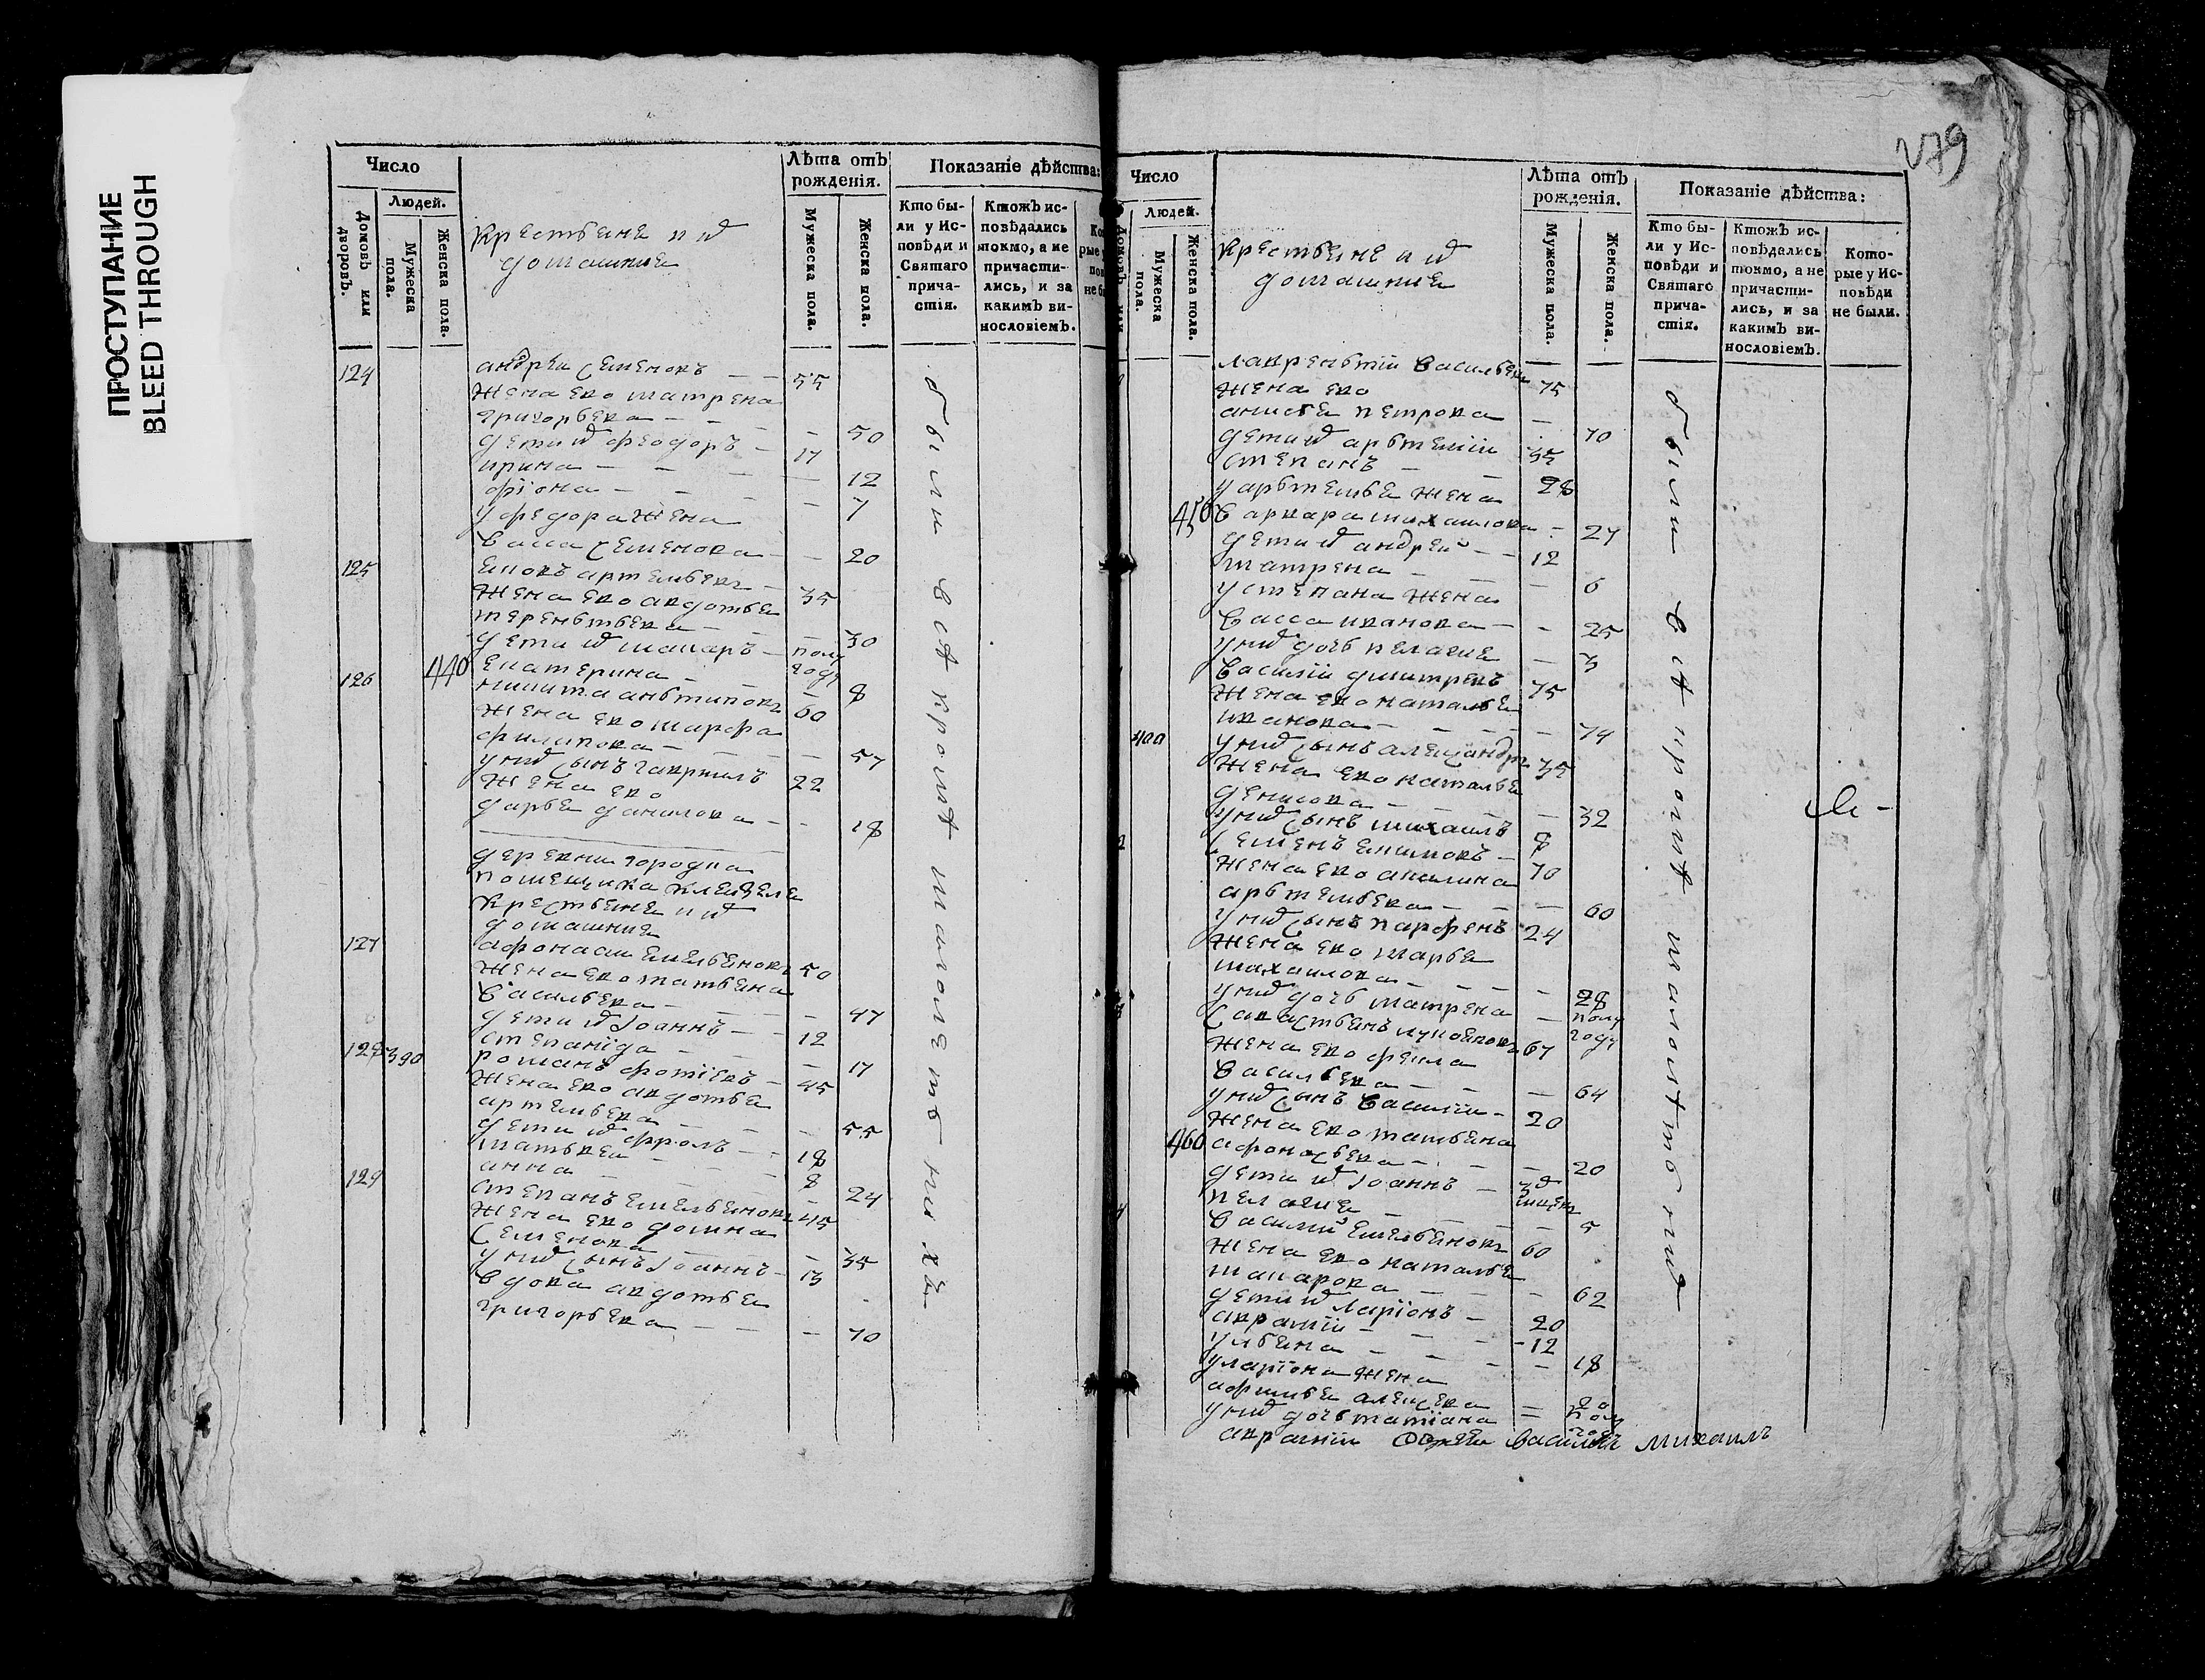 ПРОСТУПАНИЕ
BLEED THROUGH
Число
Людей.
Домовъ или дворовъ.
Мужеска пола.
Женска пола.
крестьяне и ихъ
домашние
Лѣта отъ
рожденія.
Мужеска пола.
Женска пола.
Показаніе дѣйства:
Кто бы-
ли у Ис-
повѣди и
Святаго
прича-
стія.
Ктожъ ис-
повѣдались
токмо, а не
причасти-
лись, и за
какимъ ви-
нословіемъ.
124 андреи семеновъ — — 55
жена ево матрена
григорьева — — — 50
дети их феодоръ — 17
ирина — — — 12
фіона — — — 7
у федора жена
васса семенова — — 20
125 артемьевъ — 35
жена ево авдотья
терентьева — — — 30
дети их макаръ — полу
году
440 екатерина — — — 8
126 никита антиповъ 60
жена ево марфа
филипова — — — 57
у них сынъ гаврилъ 22
жена ево
дарья данилова — — 18
деревни городка
помещика
крестьяне и их
домашние
127 афонасии емельяновъ 50
жена ево татьяна
васильева — — — 47
дети их Іоаннъ — — 12
степанида — — — 17
128 390 романъ фотіевъ — 45
жена ево авдотья
артемьева — — — 55
дети их фролъ — — 18
матвеи — — — 8
анна — — — 24
129 степанъ емельяновъ 45
жена ево домна
семенова — — 35
у них сынъ Іоаннъ — 13
вдова авдотья
григорьева — — — 70
были вси кроме малолетних
279
Число
Людей.
Домовъ или
Мужеска пола.
Женска пола.
крестьяне и их
домашние
Лѣта отъ
рожденія.
Мужеска пола.
Женска пола.
Показаніе дѣйства:
Кто бы-
ли у Ис-
повѣди и
Святаго
прича-
стія.
Ктожъ ис-
повѣдались
токмо, а не
причасти-
лись, и за
какимъ ви-
нословіемъ.
Кото-
рые у Ис-
повѣди
не были.
лаврентіи васильевъ 75
жена ево
анисья петрова — 70
дети их артеміи 35
степанъ — — 28
у артемья жена
450 варвара михаилова — 27
дети их андрей — — 12
матрена — — — 6
у степана жена
васса иванова — — 25
у них дочь пелагие — 3
василіи дмитревъ 75
жена ево наталья
иванова — — — — 74
400 у них сынъ александръ 35
жена ево наталья
денисова — — — 32
у них сынъ михаилъ 8
семенъ екимовъ — 70
жена ево акилина
артемьева — — — 60
у них сынъ парфенъ 24
жена ево марья
михаилова — — — — 28
у них дочь матрена — полу
году
савастьянъ 67
жена ево фекла
васильева — — — 64
у них сынъ василіи — 20
жена ево татьяна
460 афонасьева — — — 20
дети их Іоаннъ —
пелагие — — — 5
василий емельяновъ 60
жена ево наталья
макарова — — — 62
дети их ларіонъ — 20
авраміи — — — 12
ульяна — — — — 18
у ларіона жена
афимья алексева = 20
у них дочь татіана = полу
году
были вси кроме малолетних
авраміи василей михаилъ